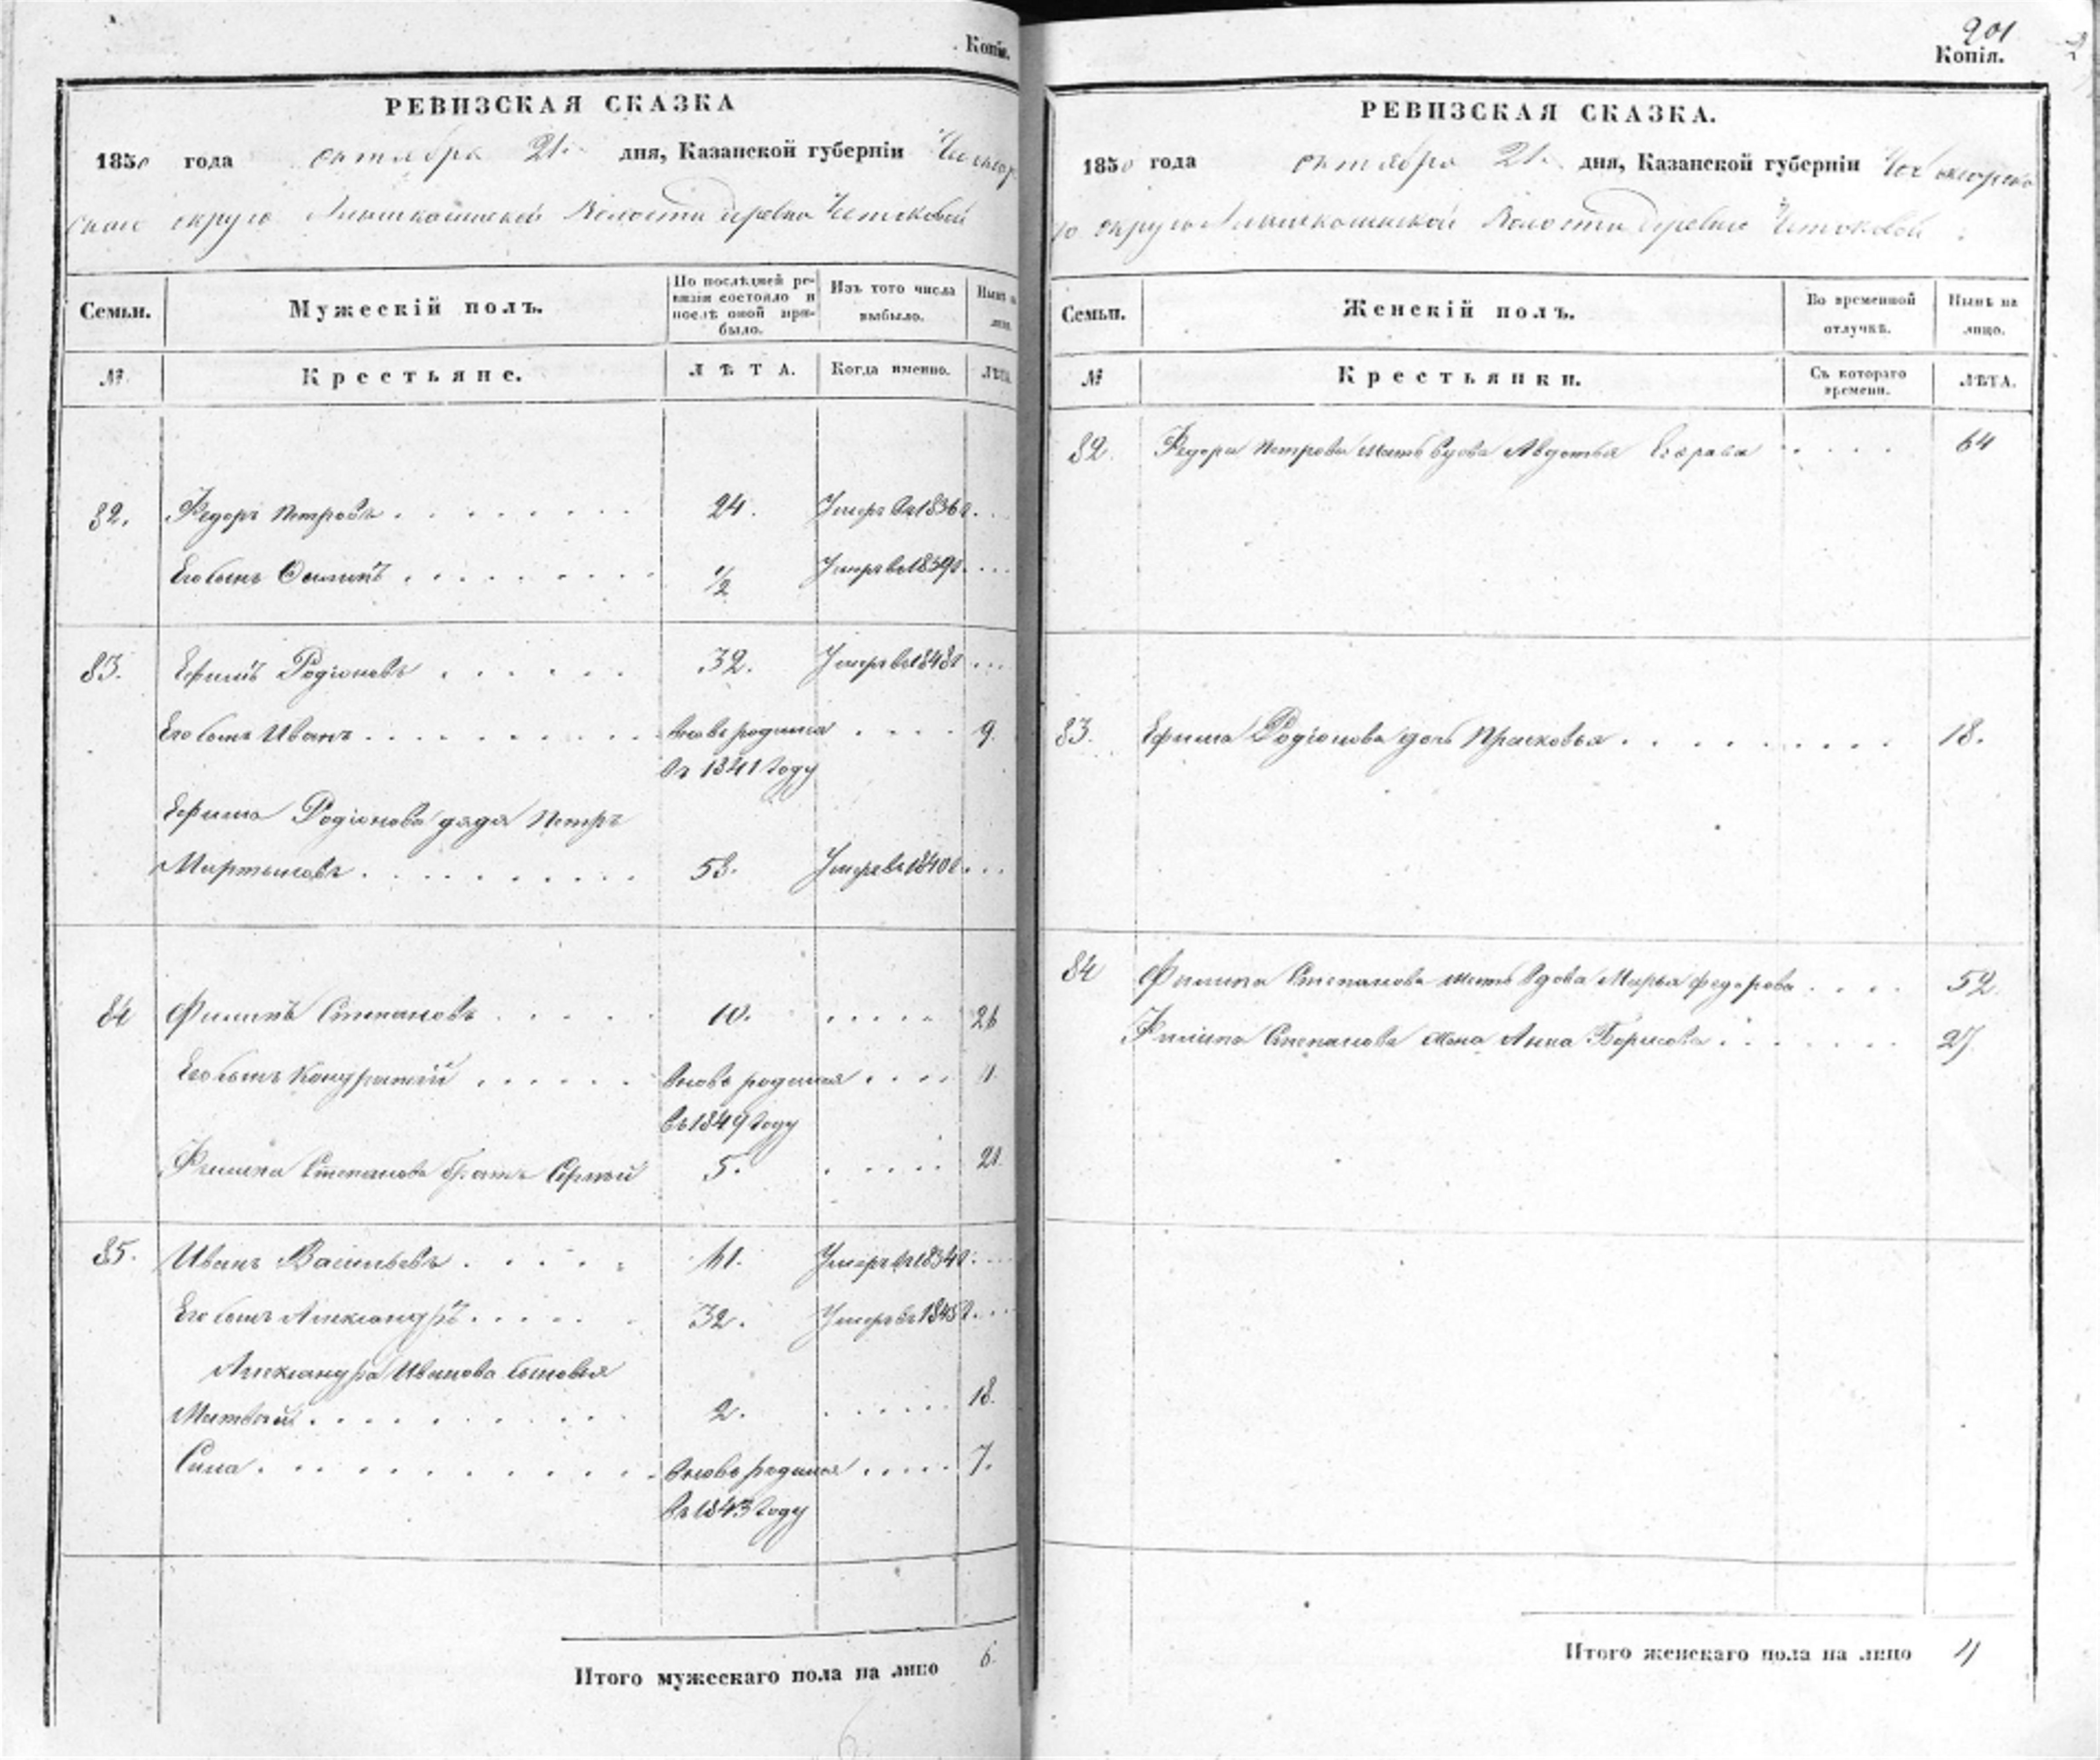 Копія.
РЕВИЗСКАЯ СКАЗКА
1850 года октября 21 дня, Казанской губерніи
округа Волости деревни
Семьи.
Мужескій полъ.
По послѣдней ре-
визіи состояло и
послѣ оной при-
было.
Изъ того числа
выбыло.
Нынѣ на
лицо.
№
Крестьяне.
ЛѢТА.
Когда именно.
ЛѢТА.
82. Федоръ Петровъ . . . . . . . . 24. Умеръ въ 1836 г. . .
Его сынъ Осипъ . . . . . . . . 1/2 Умеръ въ 1839 г. . .
83. Ефимъ Родіоновъ . . . . . . 32. Умеръ въ 1848 г. . .
Его сынъ Иванъ . . . . . . . . . вновь родился . . . . 9.
въ 1841 году
Ефима Родіонова дядя Петръ
Мартыновъ . . . . . . . . . 53. Умеръ въ 1840 г. . .
84 Филипъ Степановъ . . . . . 10. . . . . . 26
Его сынъ Кондратій . . . . . вновь родился . . . . 1.
въ 1849 году
Филипа Степанова братъ Сергѣй 5. . . . . . 21.
85. Иванъ Васильевъ . . . . . 41. Умеръ въ 1834 г. . .
Его сынъ Александръ . . . . . 32. Умеръ въ 1845 г. . .
Александра Иванова сыновья
Матвѣй . . . . . . . . . 2. . . . . . . 18.
Сила . . . . . . . . . . . вновь родился . . . . . 7.
въ 1843 году
Итого мужескаго пола на лицо 6.
201
Копія.
РЕВИЗСКАЯ СКАЗКА.
1850 года октября 21 дня, Казанской губерніи Чебоксарска
го округа Волости деревни
Семьи.
Женскій полъ.
Во временной
отлучкѣ.
Нынѣ на
лицо.
№
Крестьянки.
Съ котораго
времени.
ЛѢТА.
82. Федора Петрова мать вдова Авдотья Егорова . . . . 64
83. Ефима Родіонова дочь Прасковья . . . . . . . . . 18.
84 Филипа Степанова мать вдова Марья Федорова . . . . 52.
Филипа Степанова жена Анна Борисова . . . . . . . 27
Итого женскаго пола на лицо 4